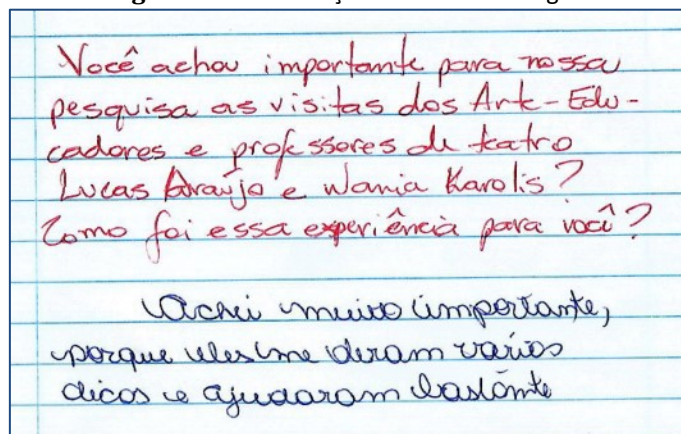 Você achou importante para nossa
pesquisa as visitas dos Arte-Edu-
cadores e professores de teatro
Lucas Araújo e Wania Karolis?
Como foi essa experiência para você?
Achei muito importante,
porque eles me deram varios
dicas e ajudaram bastante